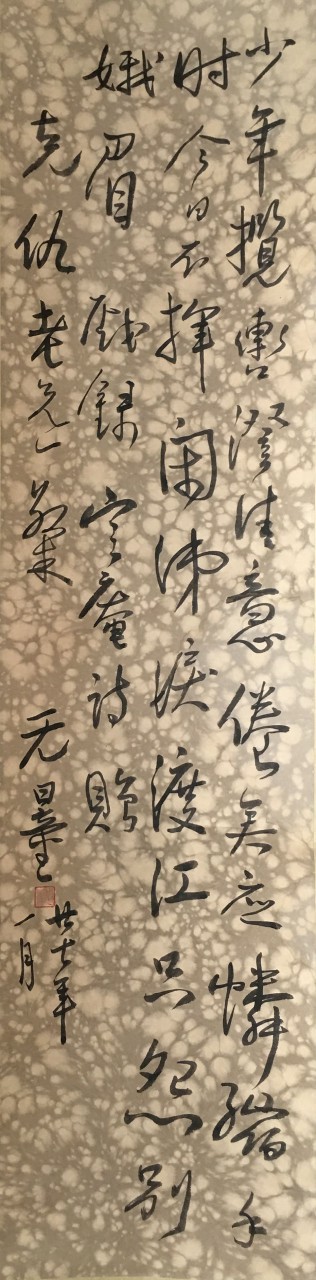 少年攬轡澄清意倦矣應憐縮手
时今日不揮閑涕淚渡江只怨別
娥眉 戲錄定庵詩贈
克仇老兄一粲 无量
廿七年
一月